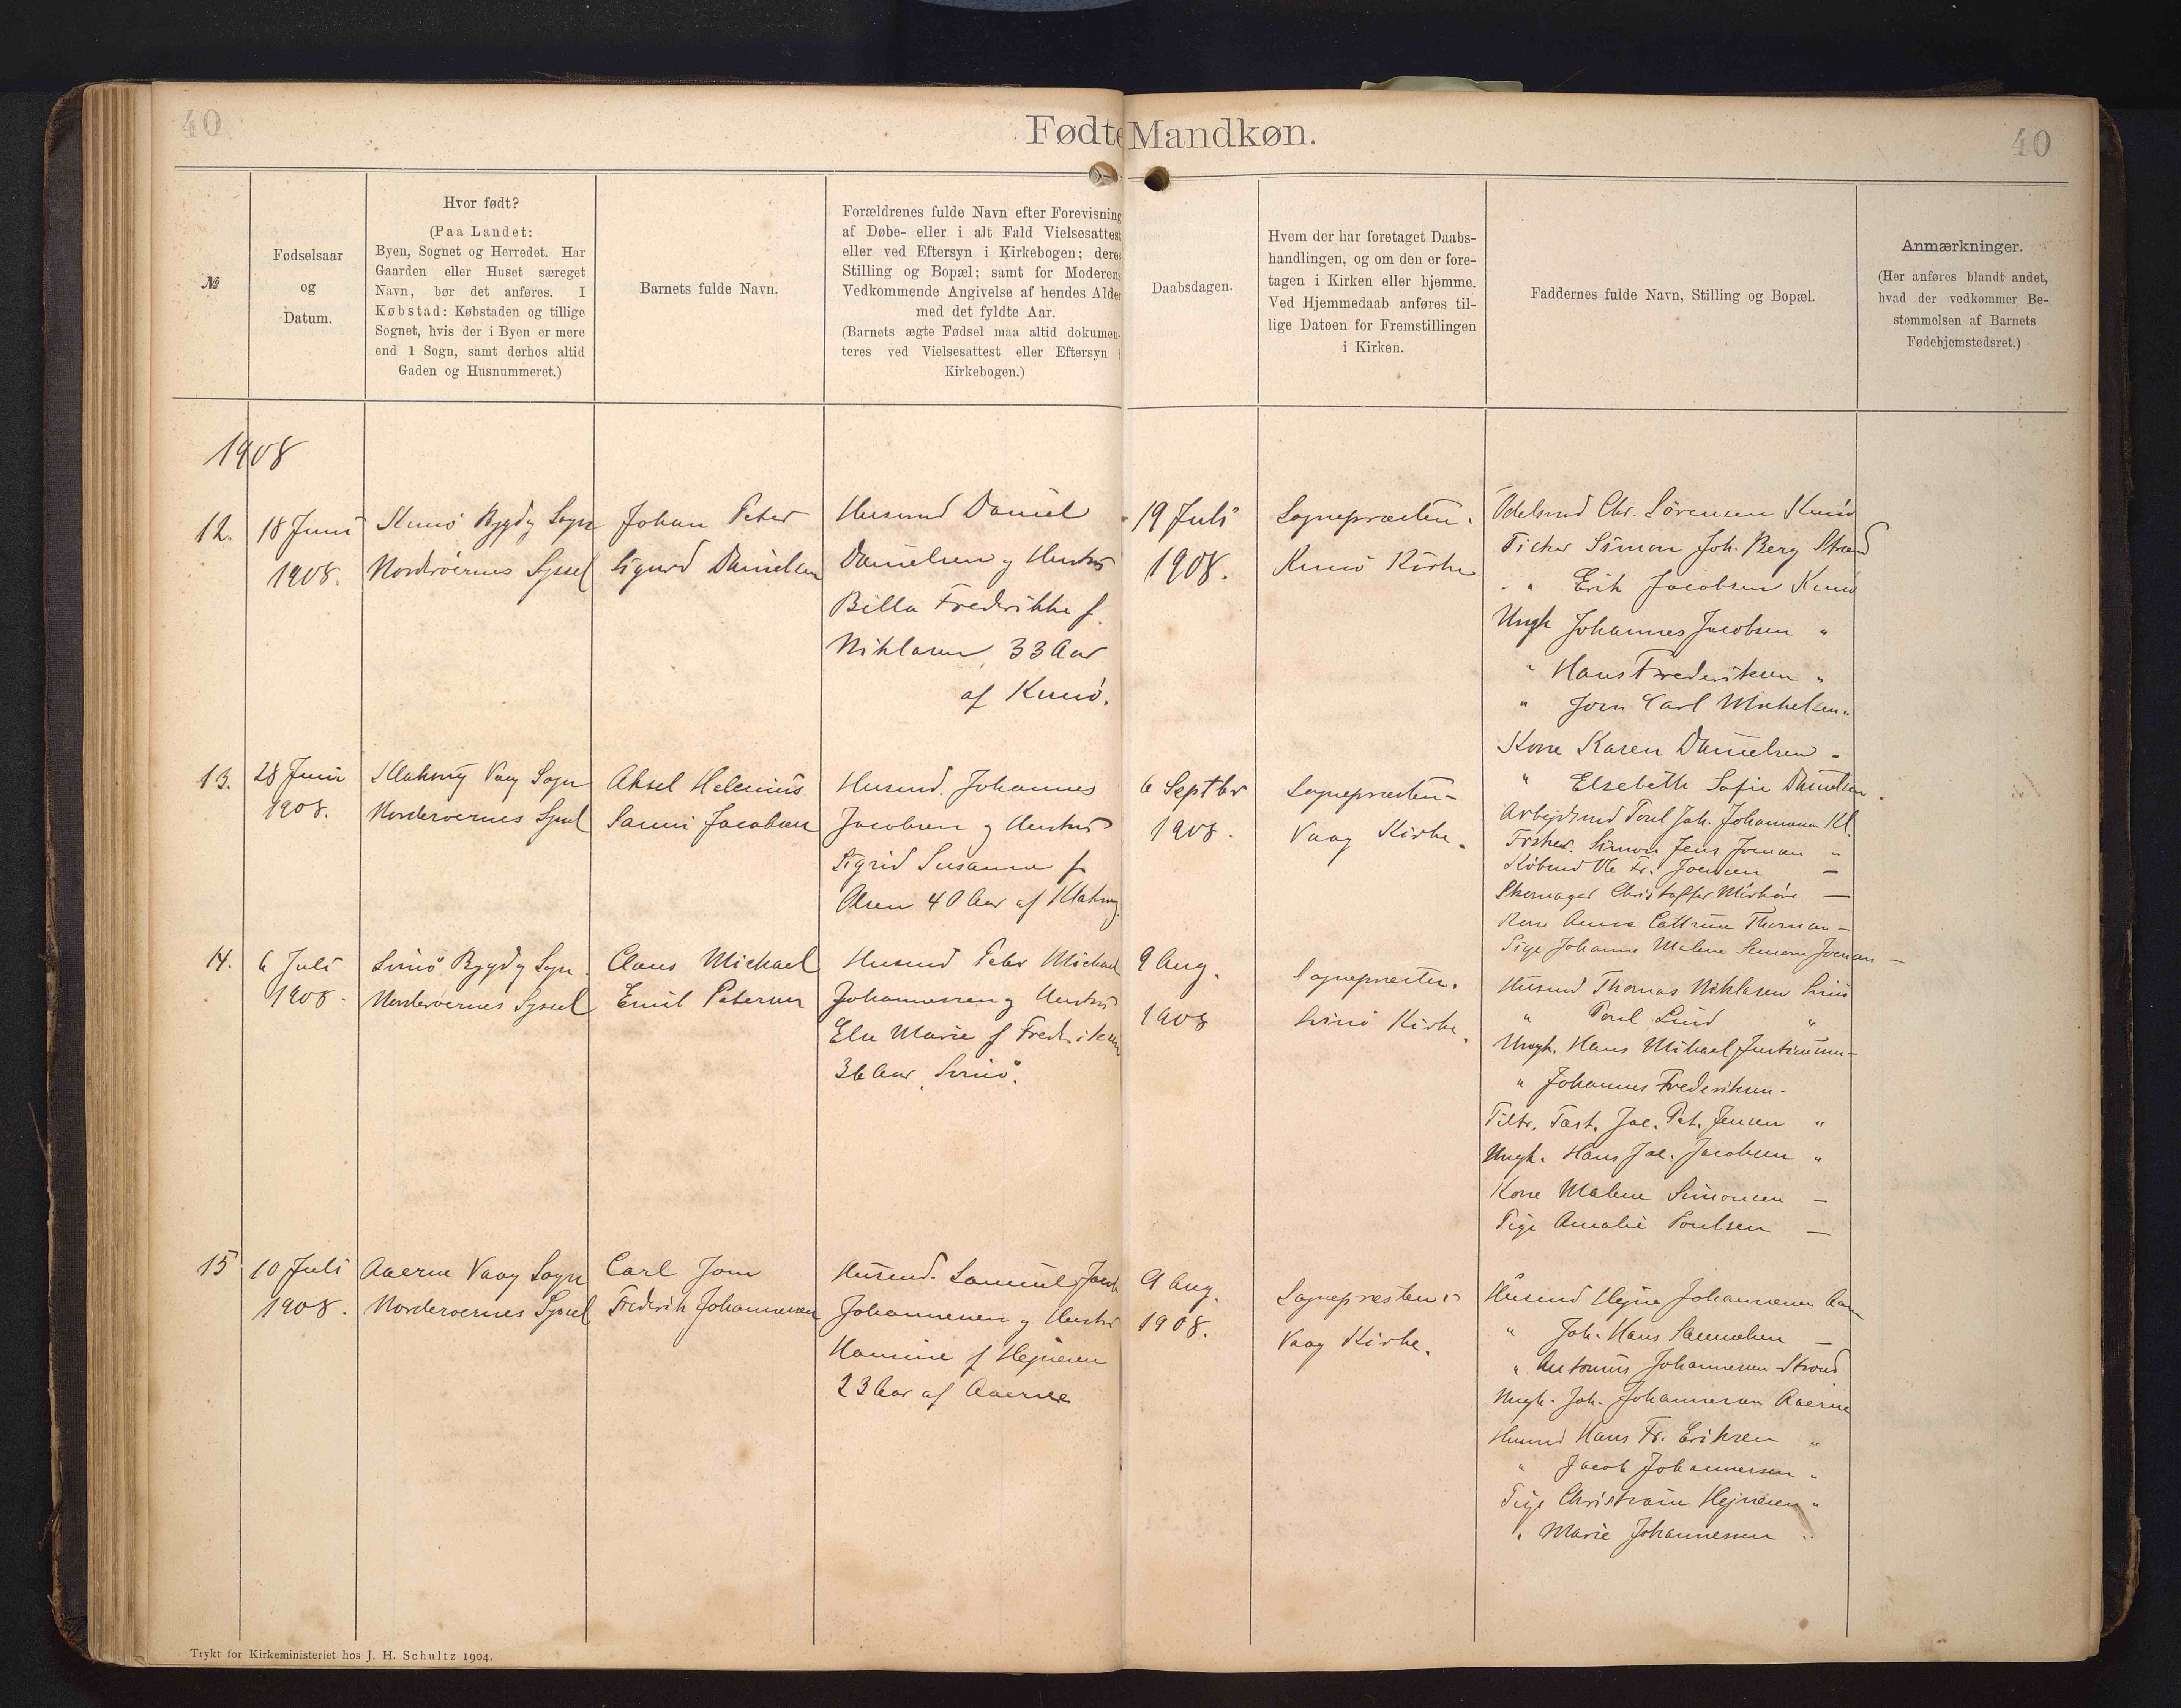 40
Fødte Mandkøn.
40
№
Fødselsaar
og
Datum.
Hvor født?
(Paa Landet:
Byen, Sognet og Herredet. Har
Gaarden eller Huset særeget
Navn, bør det anføres. I
Købstad: Købstaden og tillige
Sognet, hvis der i Byen er mere
end 1 Sogn, samt derhos altid
Gaden og Husnummeret.)
Barnets fulde Navn.
Forældrenes fulde Navn efter Forevisning
af Døbe- eller i alt Fald Vielsesattest
eller ved Eftersyn i Kirkebogen; deres
Stilling og Bopæl; samt for Moderens
Vedkommende Angivelse af hendes Alder
med det fyldte Aar.
(Barnets ægte Fødsel maa altid dokumen-
teres ved Vielsesattest eller Eftersyn i
Kirkebogen.)
Daabsdagen.
Hvem der har foretaget Daabs-
handlingen, og om den er fore-
tagen i Kirken eller hjemme.
Ved Hjemmedaab anføres til-
lige Datoen for Fremstillingen
i Kirken.
Faddernes fulde Navn, Stilling og Bopæl.
Anmærkninger.
(Her anføres blandt andet,
hvad der vedkommer Be-
stemmelsen af Barnets
Fødehjemstedsret.)
1908
12.
18 Juni
1908.
Kunø Bygd og Sogn
Norderøernes Syssel
Johan Peter
Sigurd Danielsen
Husmd Daniel
Danielsen og Hustru
Billa Frederikke f.
Niklasen 33 Aar
af Kunø.
19 Juli
1908.
Sognepræsten.
Kunø Kirke
Odelsmd Chr. Sörensen Kunø
Fisker Simon Joh. Berg Strand
" Erik Jacobsen Kunø
Ungk Johannes Jacobsen "
" Hans Frederiksen "
" Joen Carl Michelsen "
Kone Karen Danielsen "
" Elsebeth Sofie Danielsen
13.
28 Juni
1908.
Klaksvig Vaag Sogn
Norderøernes Syssel
Aksel Helenius
Sanni Jacobsen
Husmd. Johannes
Jacobsen og Hustru
Sigrid Susanne f.
Olsen 40 Aar af Klaksvig
6 Septbr
1908.
Sognepræsten
Vaag Kirke.
Arbejdsmd Poul Joh. Johannesen Kl.
Fisker. Simon Jens Joensen "
Købmd Ole Fr. Joensen —
Skomager Christoffer —
Kone Anna Cathrine Thomsen —
Pige Johanne Malene Simone Joensen —
14.
6 Juli
1908.
Svinø Bygd og Sogn
Norderøernes Syssel
Claus Michael
Emil Petersen
Husmd Peter Michael
Johannesen og Hustru
Else Marie f Frederiksen
36 Aar, Svinø.
9 Aug.
1908
Sognepræsten.
Svinø Kirke.
Husmd Thomas Niklasen Svinø
" Poul Lind "
Ungk. Hans Mikael Justinussen —
" Johannes Frederiksen —
Jac. Pet. Jensen "
Ungk. Hans Jac. Jacobsen "
Kone Malene Simonsen —
Pige Amalie Poulsen —
15
10 Juli
1908.
Aaerne Vaag Sogn
Norderøernes Syssel
Carl Joen
Frederik Johannesen
Husmd. Samuel Jacob
Johannesen og Hustru
Hansine f Hejnesen
23 Aar af Aaerne
9 Aug.
1908.
Sognepræsten.
Vaag Kirke.
Husmd Hejne Johannesen Aaerne
" Joh. Hans Samuelsen —
" Antonius Johannesen Strand
Ungk. Joh. Johannesen Aaerne
Husmd Hans Fr. Eriksen "
" Jacob Johannesen "
Pige Christiane Hejnesen "
" Marie Johannesen "
Trykt for Kirkeministeriet hos J. H. Schultz 1904.